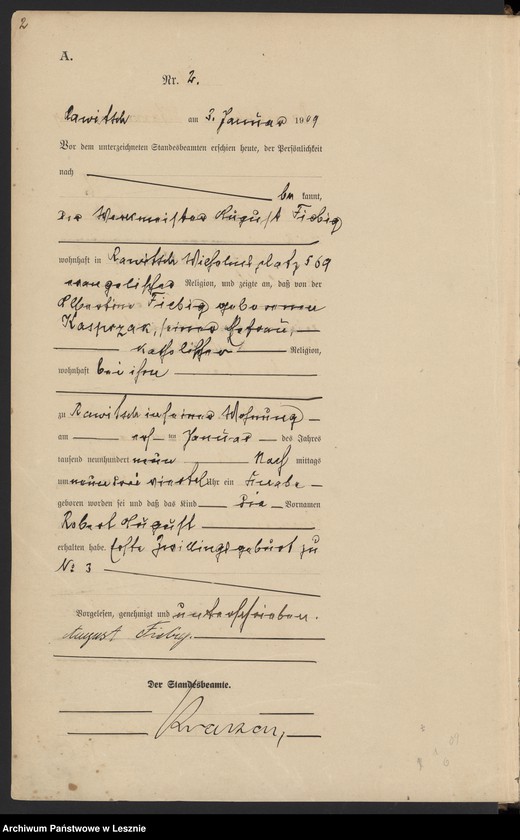 2
A.
Nr. 2.
Rawitsch am 3. Januar 1909
Vor dem unterzeichneten Standesbeamten erschien heute, der Persönlichkeit
nach
be kannt,
der Werkmeister August Fiebig
wohnhaft in Rawitsch Wilhelmsplatz 509
evangelischer Religion, und zeigte an, daß von der
Albertine Fiebig geborenen
Kasprzak, seiner Ehefrau,
katholischer Religion,
wohnhaft bei ihm
zu Rawitsch in seiner Wohnung
am ersten Januar des Jahres
tausend neunhundert neun Nach mittags
um neun drei viertel Uhr ein Knabe
geboren worden sei und daß das Kind die Vornamen
Robert August
erhalten habe. Erste Zwillingsgeburt zu
No 3
Vorgelesen, genehmigt und unterschrieben.
August Fiebig.
Der Standesbeamte.
Archiwum Państwowe w Lesznie